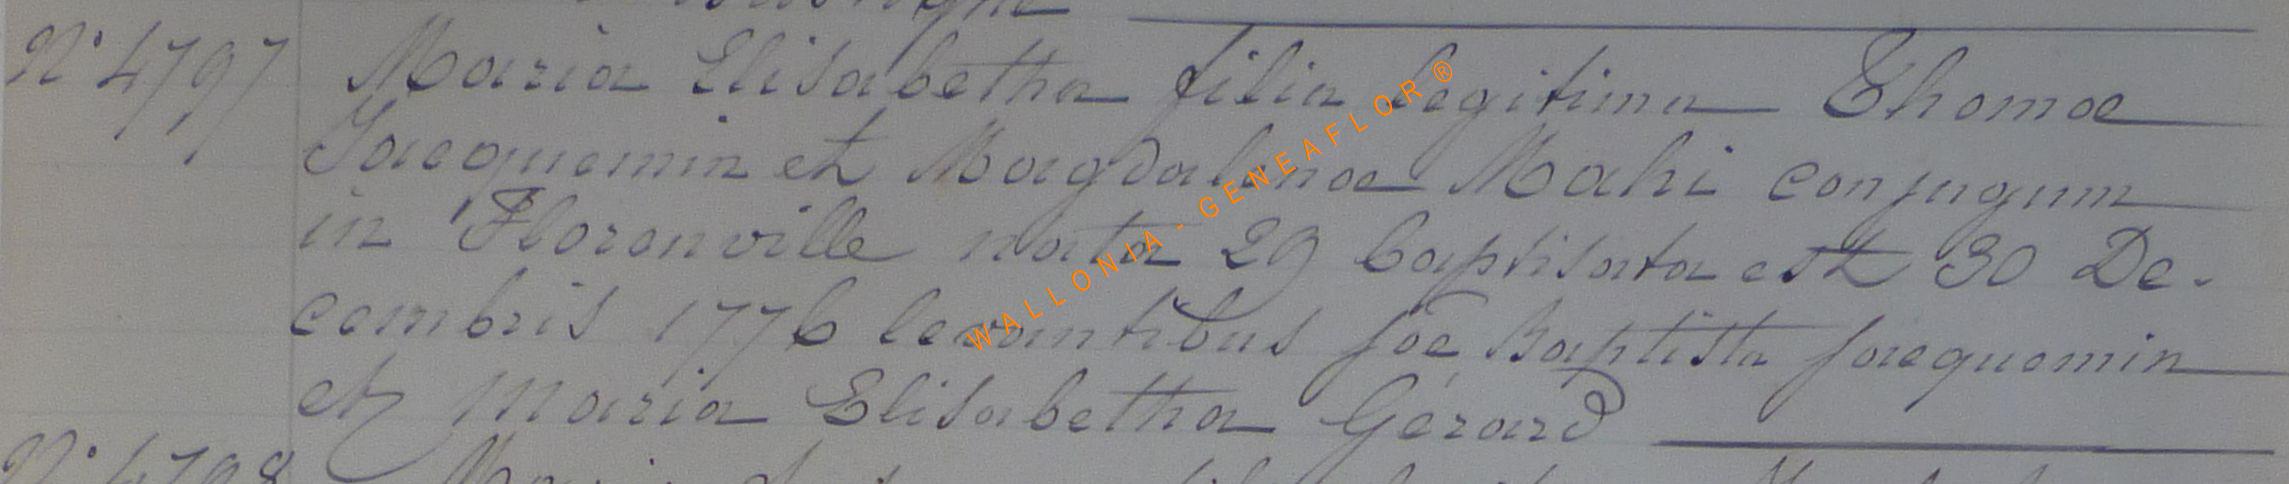 N° 4797 Maria Elisabetha filia legitima Thomae
Jacquemin et Magdalenae Mahi conjugum
in Florenville nata 29 baptisata est 30 De-
cembris 1776 levantibus Joë Baptista Jacquemin
et Maria Elisabetha Gérard
N° 4798
WALLONIA - GENEAFLOR ®